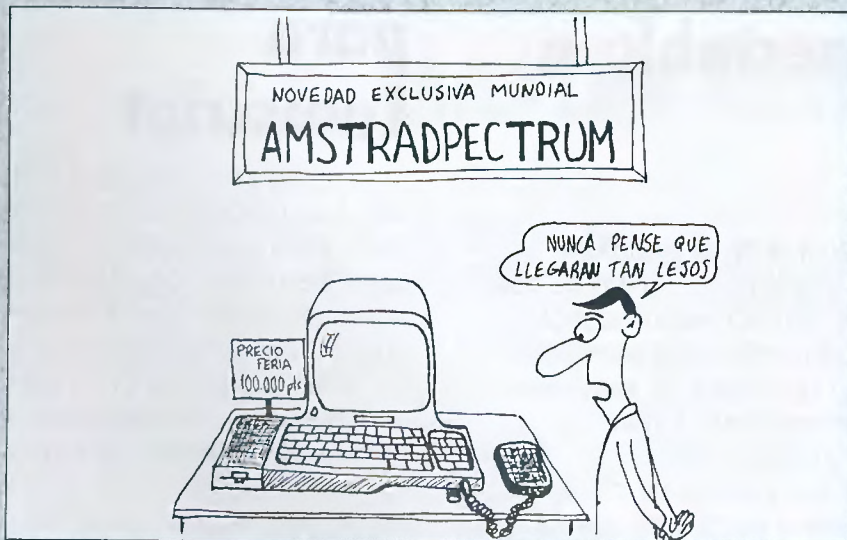 NOVEDAD EXCLUSIVA MUNDIAL
AMSTRADPECTRUM
NUNCA PENSE QUE
LLEGARAN TAN LEJOS
PRECIO
FERIA
100.000 pts